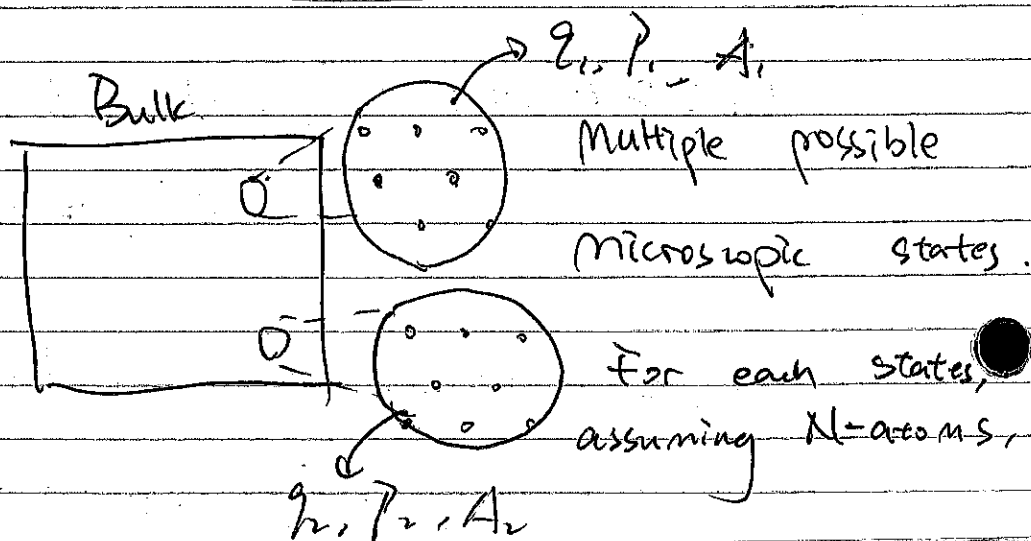 q₁, P₁, A₁
Bulk
Multiple possible
microscopic states.
For each states,
assuming N-atoms,
q₂, P₂, A₂